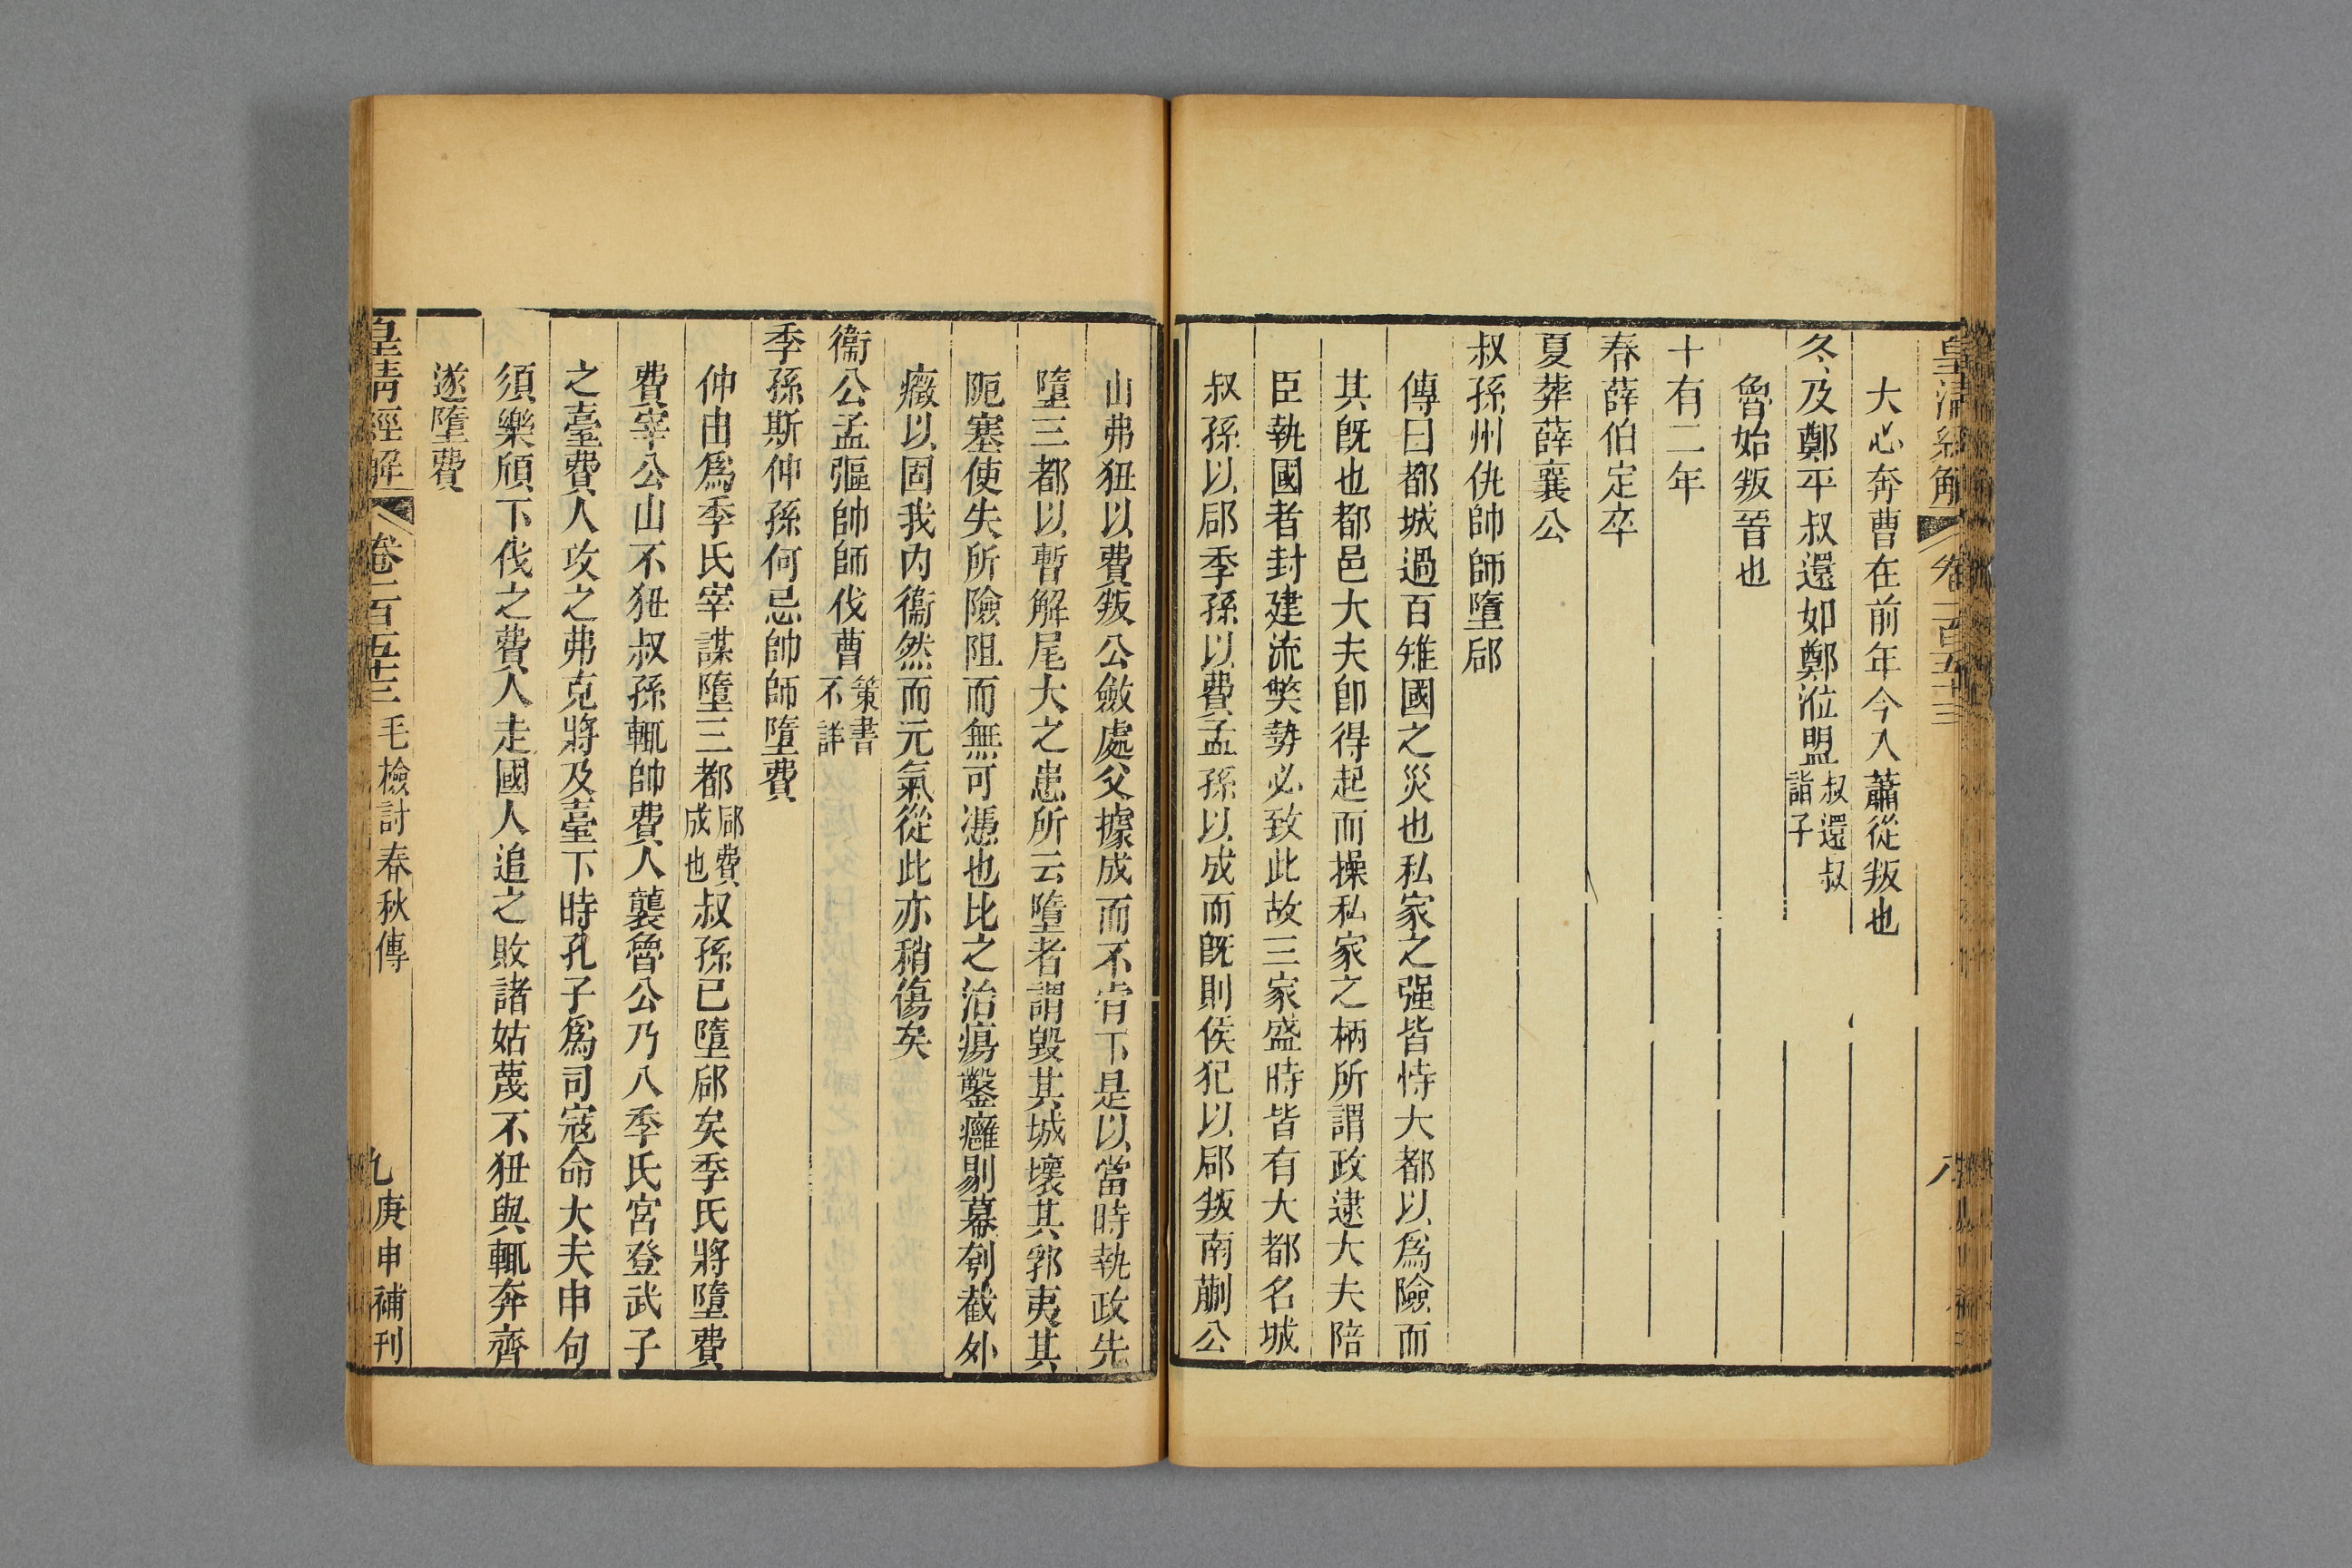 皇清經解 卷一百五十三 八
大心奔曹在前年今入蕭從叛也
冬及鄭平叔還如鄭涖盟叔還叔詣子
魯始叛晉也
十有二年
春薛伯定卒
夏葬薛襄公
叔孫州仇帥師墮郈
傳曰都城過百雉國之災也私家之强皆恃大都以爲險而
其旣也都邑大夫卽得起而操私家之柄所謂政逮大夫陪
臣執國者封建流獘勢必致此故三家盛時皆有大都名城
叔孫以郈季孫以費孟孫以成而旣則侯犯以郈叛南蒯公
山弗狃以費叛公斂處父據成而不肯下是以當時執政先
墮三都以暫解尾大之患所云墮者謂毀其城壞其郛夷其
阨塞使失所險阻而無可憑也比之治瘍鑿癰剔幕刳截外
癥以固我内衞然而元氣從此亦稍傷矣
衞公孟彄帥師伐曹策書不詳
季孫斯仲孫何忌帥師墮費
仲由爲季氏宰謀墮三都郈費成也叔孫已墮郈矣季氏將墮費
費宰公山不狃叔孫輒帥費人襲魯公乃入季氏宮登武子
之臺費人攻之弗克將及臺下時孔子爲司寇命大夫申句
須樂頎下伐之費人走國人追之敗諸姑蔑不狃與輒奔齊
遂墮費
皇清經解 卷一百五十三 毛檢討春秋傳 九 庚申補刊